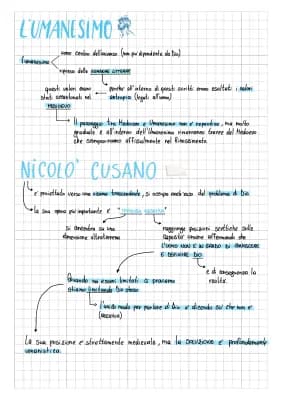 L'UMANESIMO
uomo centro dell'universo (non più dipendente da Dio)
l'umanesimo
ripresa delle HUMANAE LITTERAE
questi valori erano stati accantonati nel MEDIOEVO
perché all'interno di questi scritti erano esaltati i valori antropici (legati all'uomo)
Il passaggio tra Medioevo e Umanesimo non è repentino, ma molto
graduale e all'interno dell'Umanesimo rimarranno tracce del Medioevo
che scompariranno ufficialmente nel Rinascimento.
NICOLO' CUSANO
è proiettato verso una visione trascendente, si occupa anch'esso del problema di Dio
la sua opera più importante è "
si avvicina su una
dimensione ultraterrena
raggiunge posizioni scettiche sulle
capacità umane affermando che
L'UOMO NON È IN GRADO DI CONOSCERE
E DEFINIRE DIO
e di conseguenza la
realtà
Quando noi esseri limitati ci proviamo
stiamo limitando Dio stesso
L'unico modo per parlare di Dio è dicendo ciò che non è
(NEGATIVA)
La sua posizione è strettamente medievale, ma la SOLUZIONE è profondamente
umanistica.